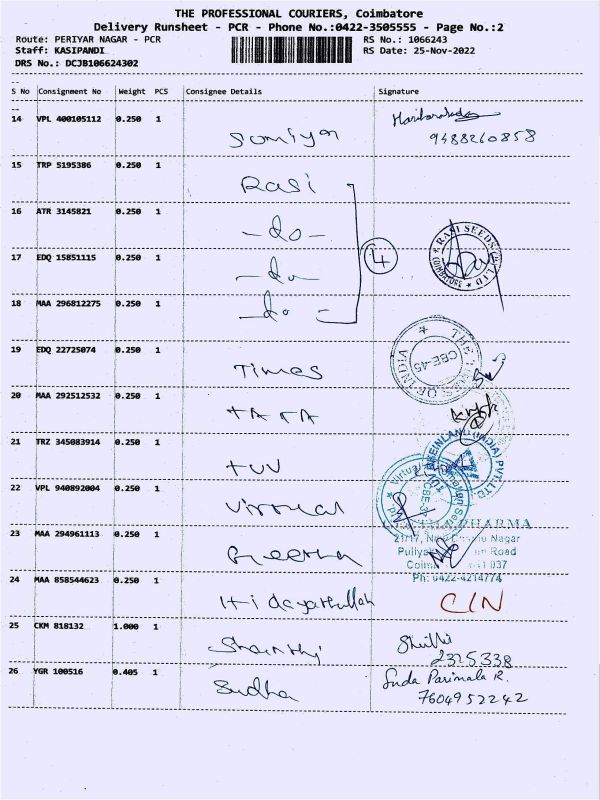 THE PROFESSIONAL COURIERS, Coimbatore
Delivery Runsheet - PCR - Phone No.:0422-3505555 - Page No.:2
Route: PERIYAR NAGAR - PCR
RS No.: 1066243
Staff: KASIPANDI
RS Date: 25-Nov-2022
DRS No.: DCJB106624302
S No Consignment No Weight PCS Consignee Details Signature
14 VPL 400105112 0.250 1 Somiya
9488260858
15 TRP 5195386 0.250 1 Rasi
16 ATR 3145821 0.250 1 -do-
17 EDQ 15851115 0.250 1 -do-
4
RASI SEEDS COIMBATORE
18 MAA 296812275 0.250 1 -do-
19 EDQ 22725074 0.250 1 Times
THE TIMES OF INDIA CBE-45
20 MAA 292512532 0.250 1 TATA
21 TRZ 345083914 0.250 1 TUV
RHEINLAND (INDIA) PVT. LTD
22 VPL 940892004 0.250 1 Virtual
Virtual
23 MAA 294961113 0.250 1 Preetha
PHARMA
Nagar
Road
Ph: 0422-4214774
24 MAA 858544623 0.250 1 Hidayathullah
C/N
25 CKM 818132 1.000 1 Shanthi
2325338
26 YGR 100516 0.405 1 Sudha
Suda Parimala R.
7604952242